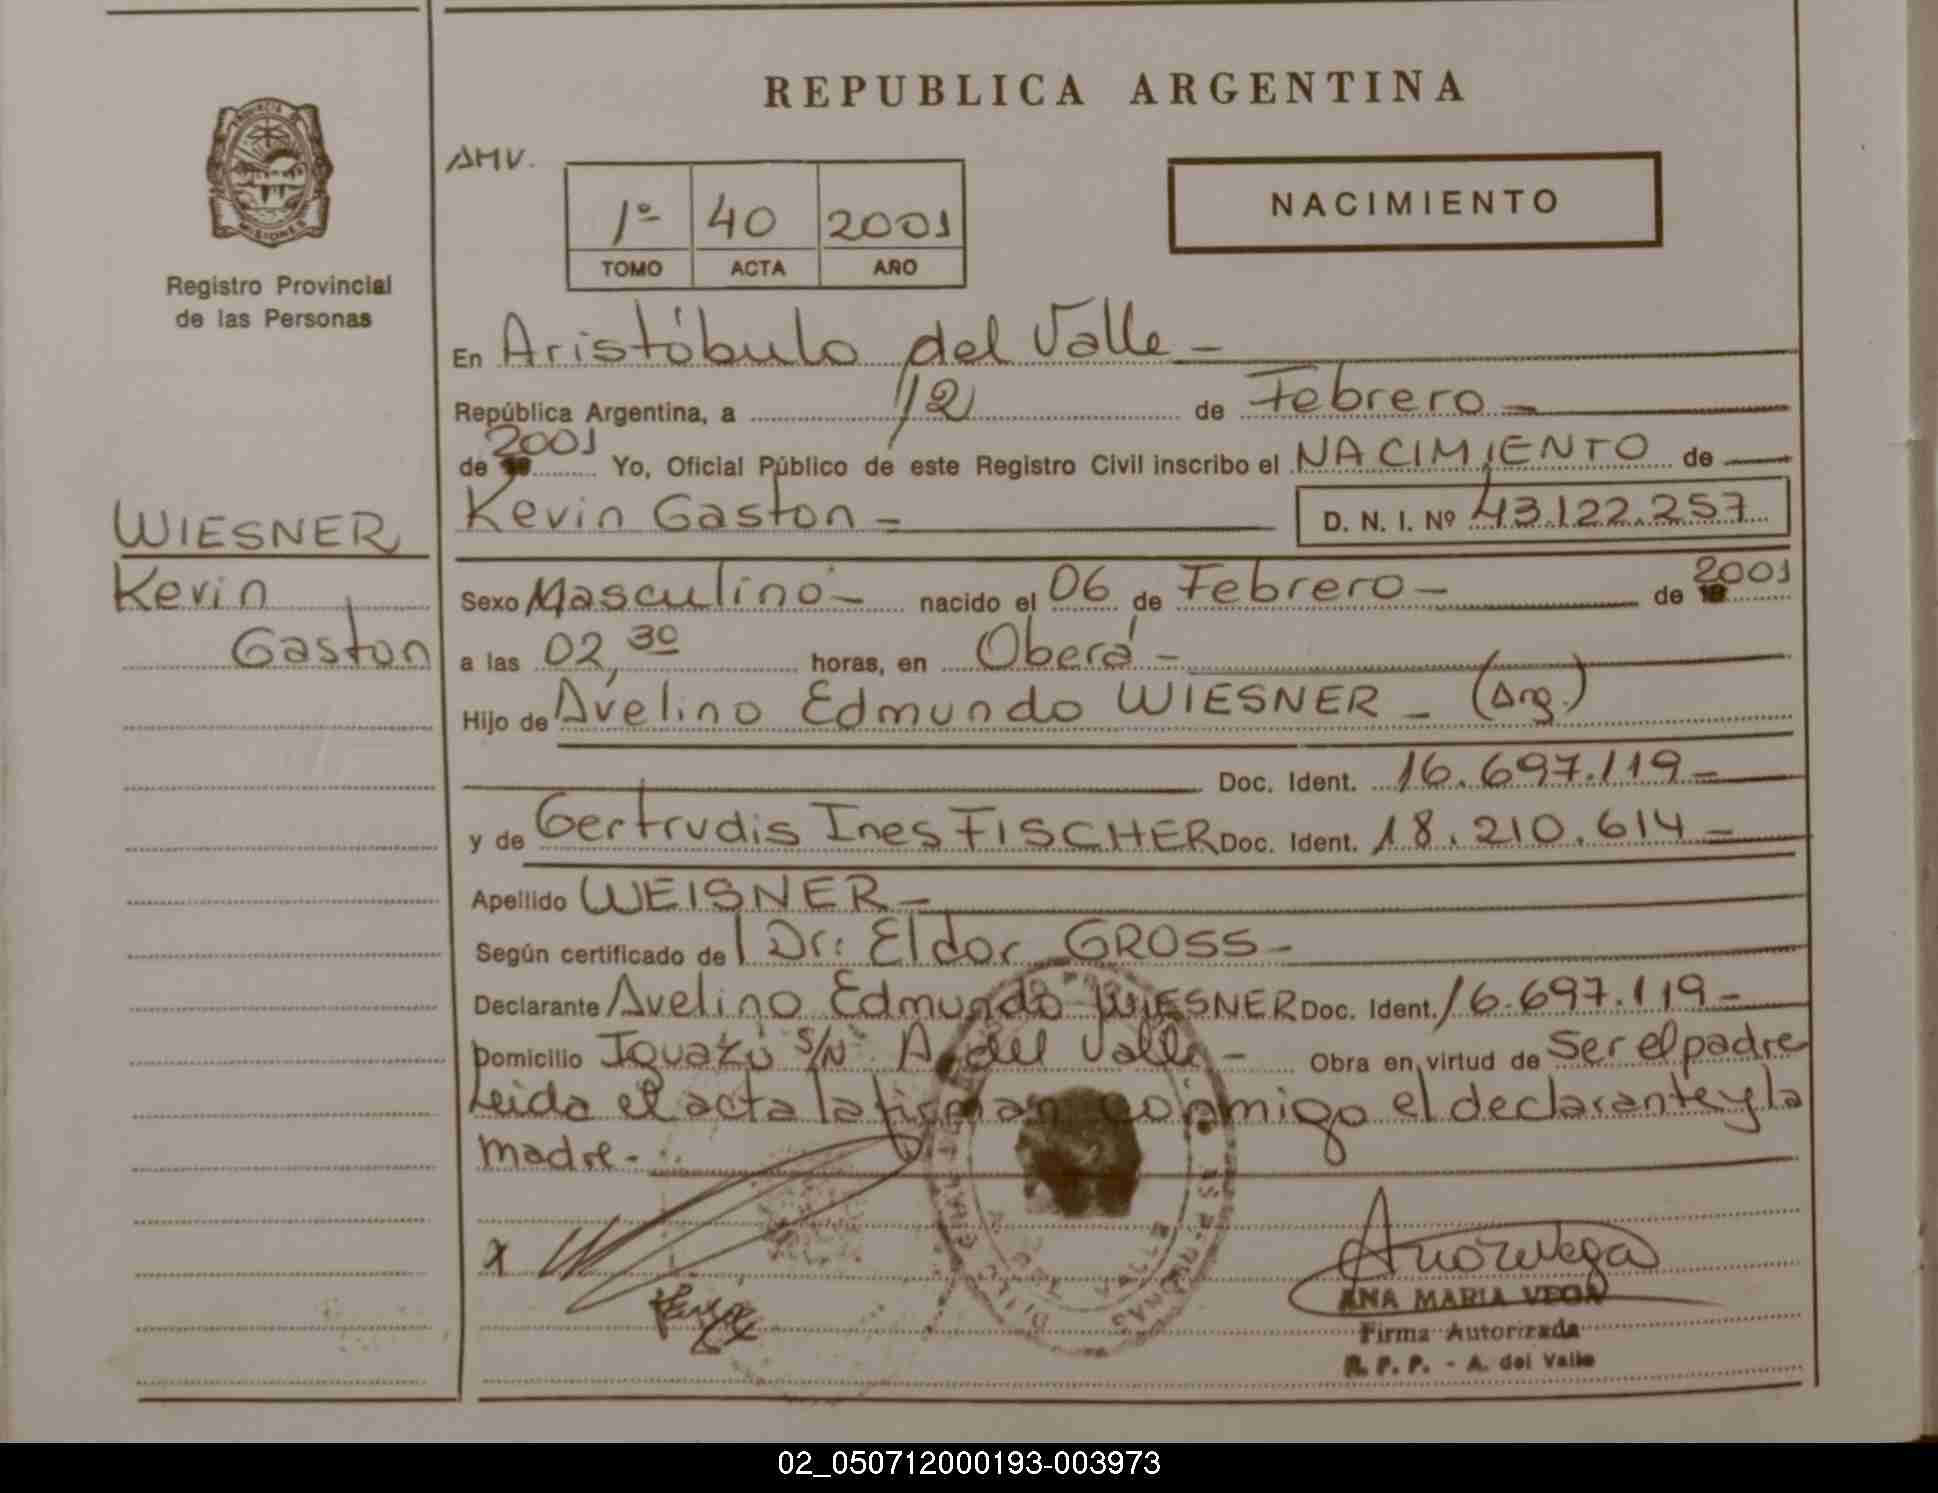 REPUBLICA ARGENTINA
PROVINCIA DE
MISIONES
Registro Provincial
de las Personas
AMV.
1º 40 2001
TOMO ACTA AÑO
NACIMIENTO
En Aristóbulo del Valle -
República Argentina, a 12 de Febrero -
de 2001 Yo, Oficial Público de este Registro Civil inscribo el NACIMIENTO de
Kevin Gaston = D. N. I. Nº 43.122.257
WIESNER
Kevin
Gaston
Sexo Masculino - nacido el 06 de Febrero - de 2001
a las 02,30 horas, en Oberá -
Hijo de Avelino Edmundo WIESNER - (Arg.)
Doc. Ident. 16.697.119 -
y de Gertrudis Ines FISCHER Doc. Ident. 18.210.614 -
Apellido WEISNER -
Según certificado de l Dr: Eldor GROSS -
Declarante Avelino Edmundo WIESNER Doc. Ident. 16.697.119 -
Domicilio Iguazú S/N A. del Valle - Obra en virtud de Ser el padre
Leida el acta la firman conmigo el declarante y la
madre -
x
A. DEL VALLE
ANA MARIA VEGA
Firma Autorizada
R. P. P. - A. del Valle
02_050712000193-003973